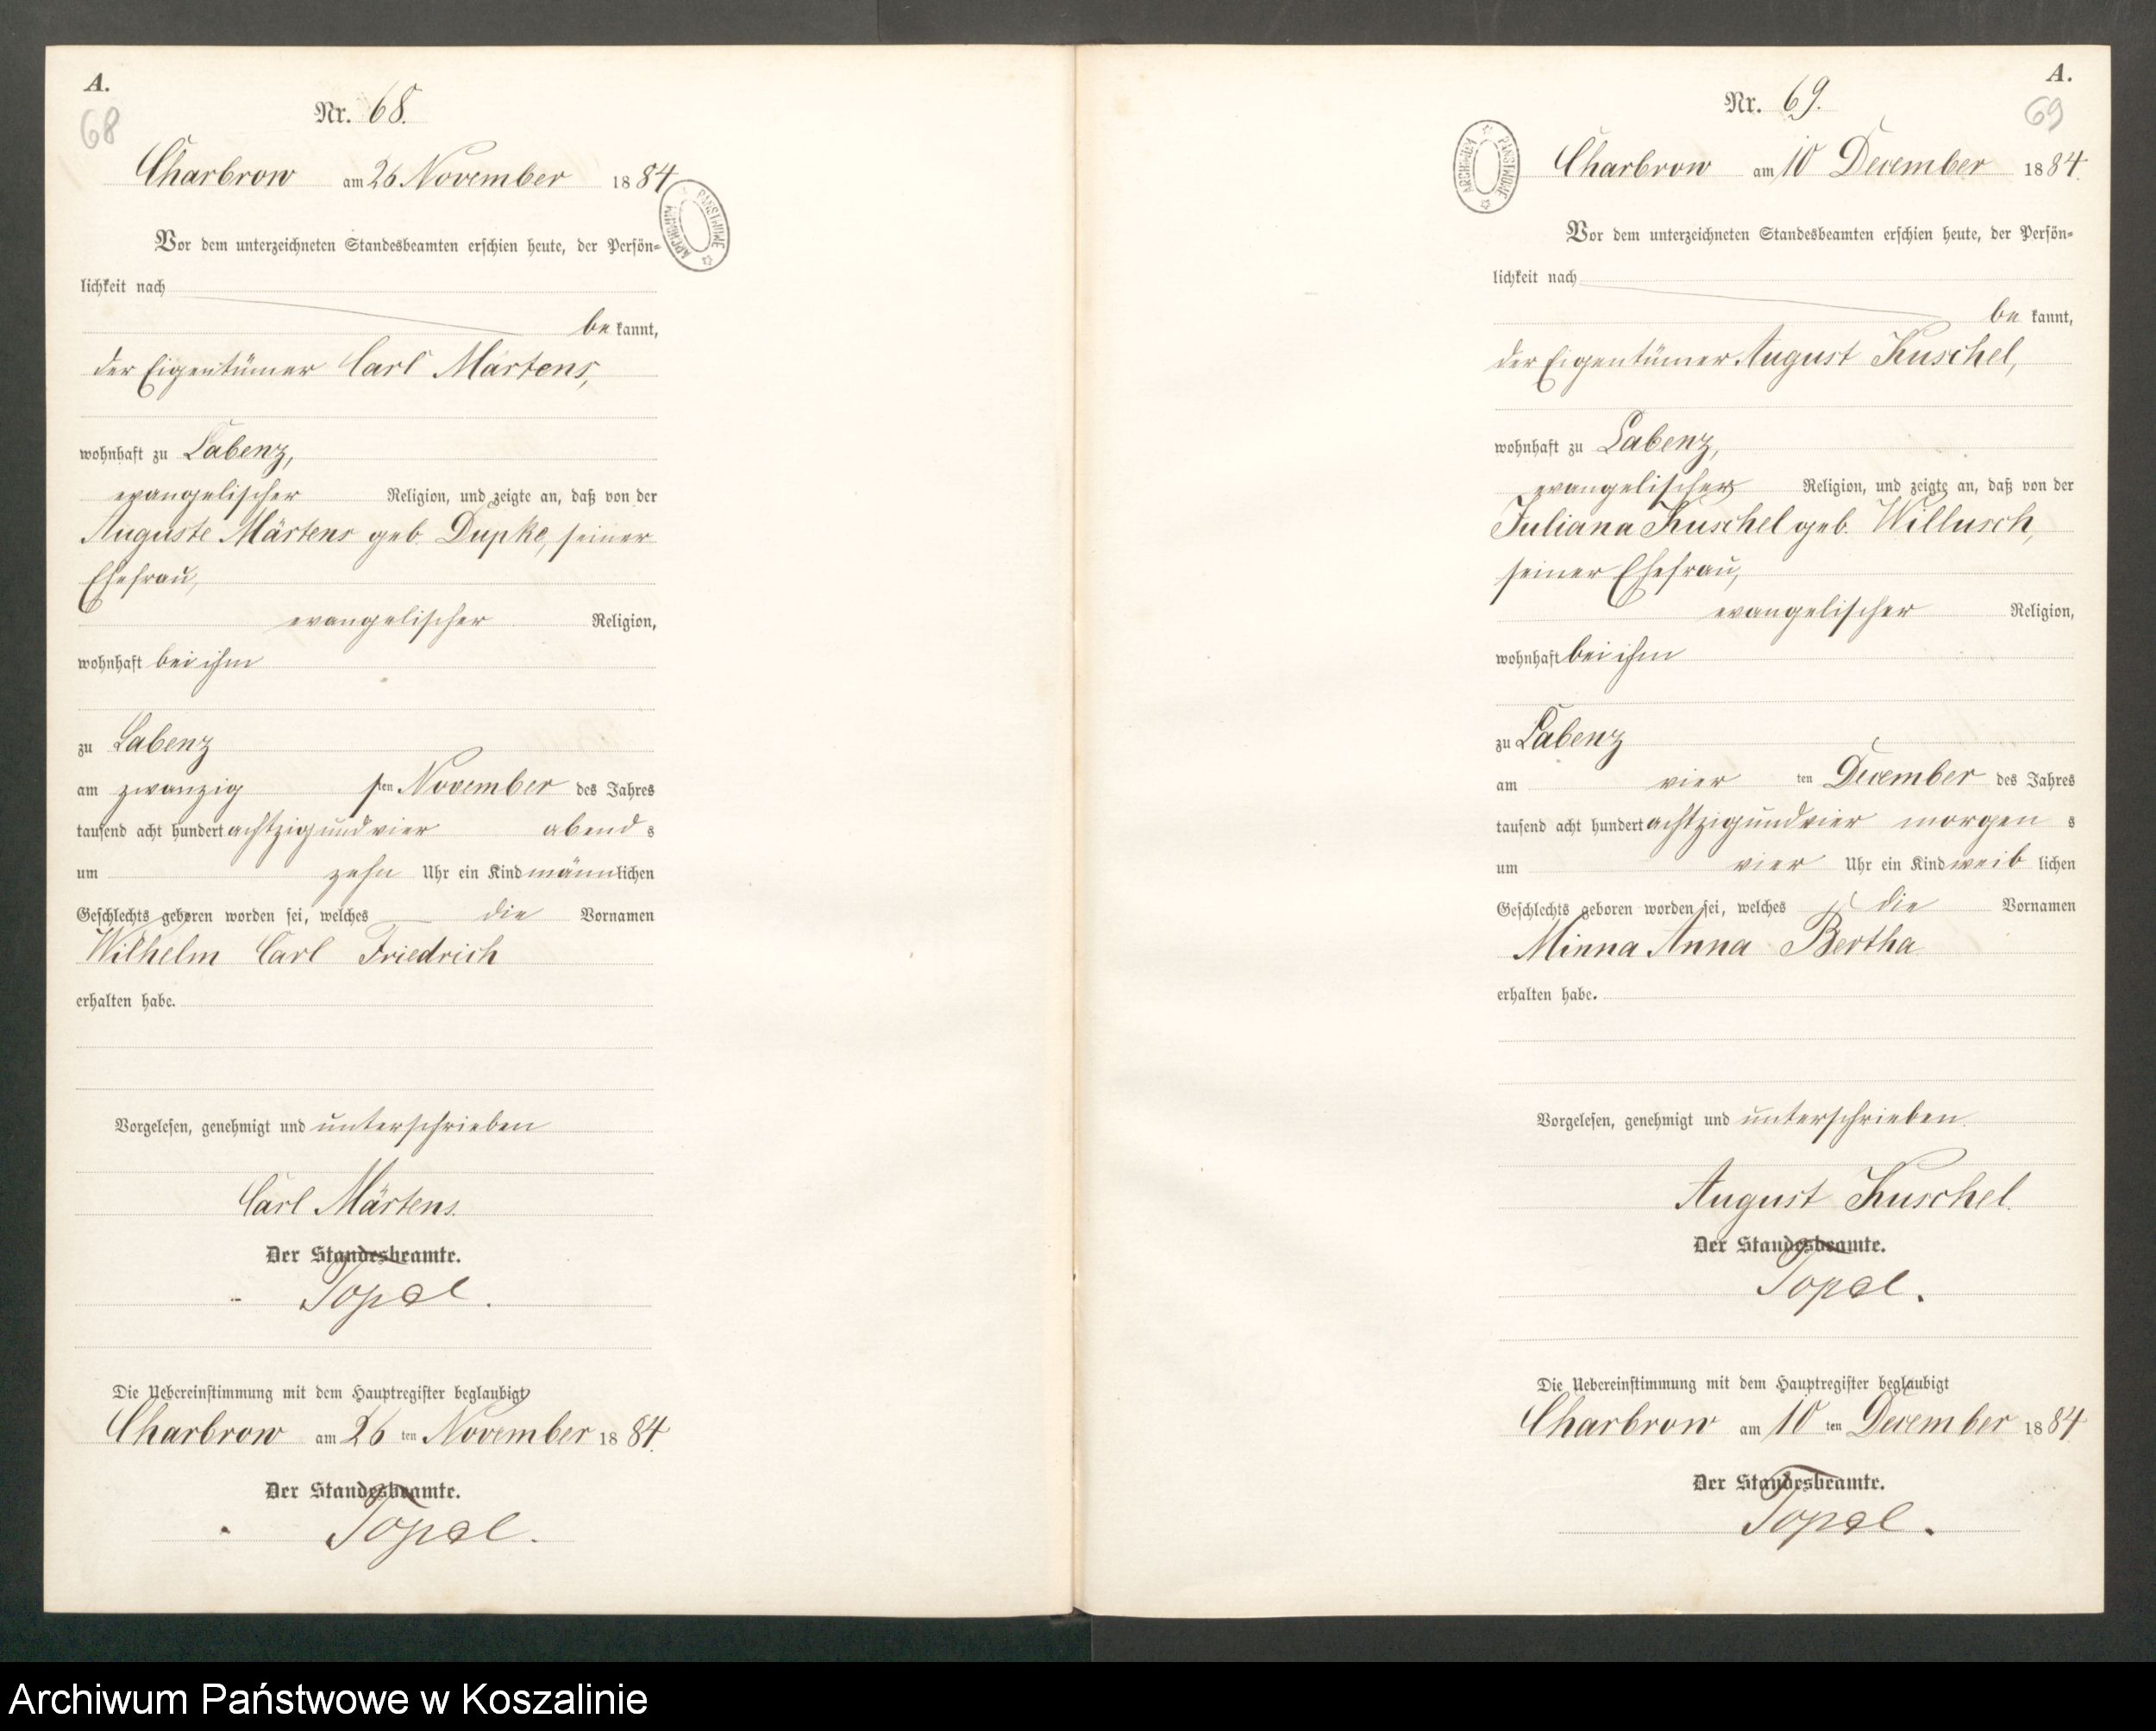 A.
68
Nr. 68.
Charbrow am 26 November 1884.
ARCHIWUM PAŃSTWOWE
Vor dem unterzeichneten Standesbeamten erschien heute, der Persön-
lichkeit nach
be kannt,
der Eigentümer Carl Märtens,
wohnhaft zu Labenz,
evangelischer Religion, und zeigte an, daß von der
Auguste Märtens geb. Dupke, seiner
Ehefrau,
evangelischer Religion,
wohnhaft bei ihm
zu Labenz
am zwanzig sten November des Jahres
tausend acht hundert achtzigundvier abend s
um zehn Uhr ein Kind männlichen
Geschlechts geboren worden sei, welches die Vornamen
Wilhelm Carl Friedrich
erhalten habe.
Vorgelesen, genehmigt und unterschrieben
Carl Märtens.
Der Standesbeamte.
Topel.
Die Uebereinstimmung mit dem Hauptregister beglaubigt
Charbrow am 26 ten November 1884.
Der Standesbeamte.
Topel.
A.
69
Nr. 69.
ARCHIWUM PAŃSTWOWE
Charbrow am 10 December 1884.
Vor dem unterzeichneten Standesbeamten erschien heute, der Persön-
lichkeit nach
be kannt,
der Eigentümer August Kuschel,
wohnhaft zu Labenz,
evangelischer Religion, und zeigte an, daß von der
Juliana Kuschel geb. Willusch,
seiner Ehefrau,
evangelischer Religion,
wohnhaft bei ihm
zu Labenz
am vier ten December des Jahres
tausend acht hundert achtzigundvier morgen s
um vier Uhr ein Kind weib lichen
Geschlechts geboren worden sei, welches die Vornamen
Minna Anna Bertha
erhalten habe.
Vorgelesen, genehmigt und unterschrieben.
August Kuschel.
Der Standesbeamte.
Topel.
Die Uebereinstimmung mit dem Hauptregister beglaubigt
Charbrow am 10 ten December 1884.
Der Standesbeamte.
Topel.
Archiwum Państwowe w Koszalinie